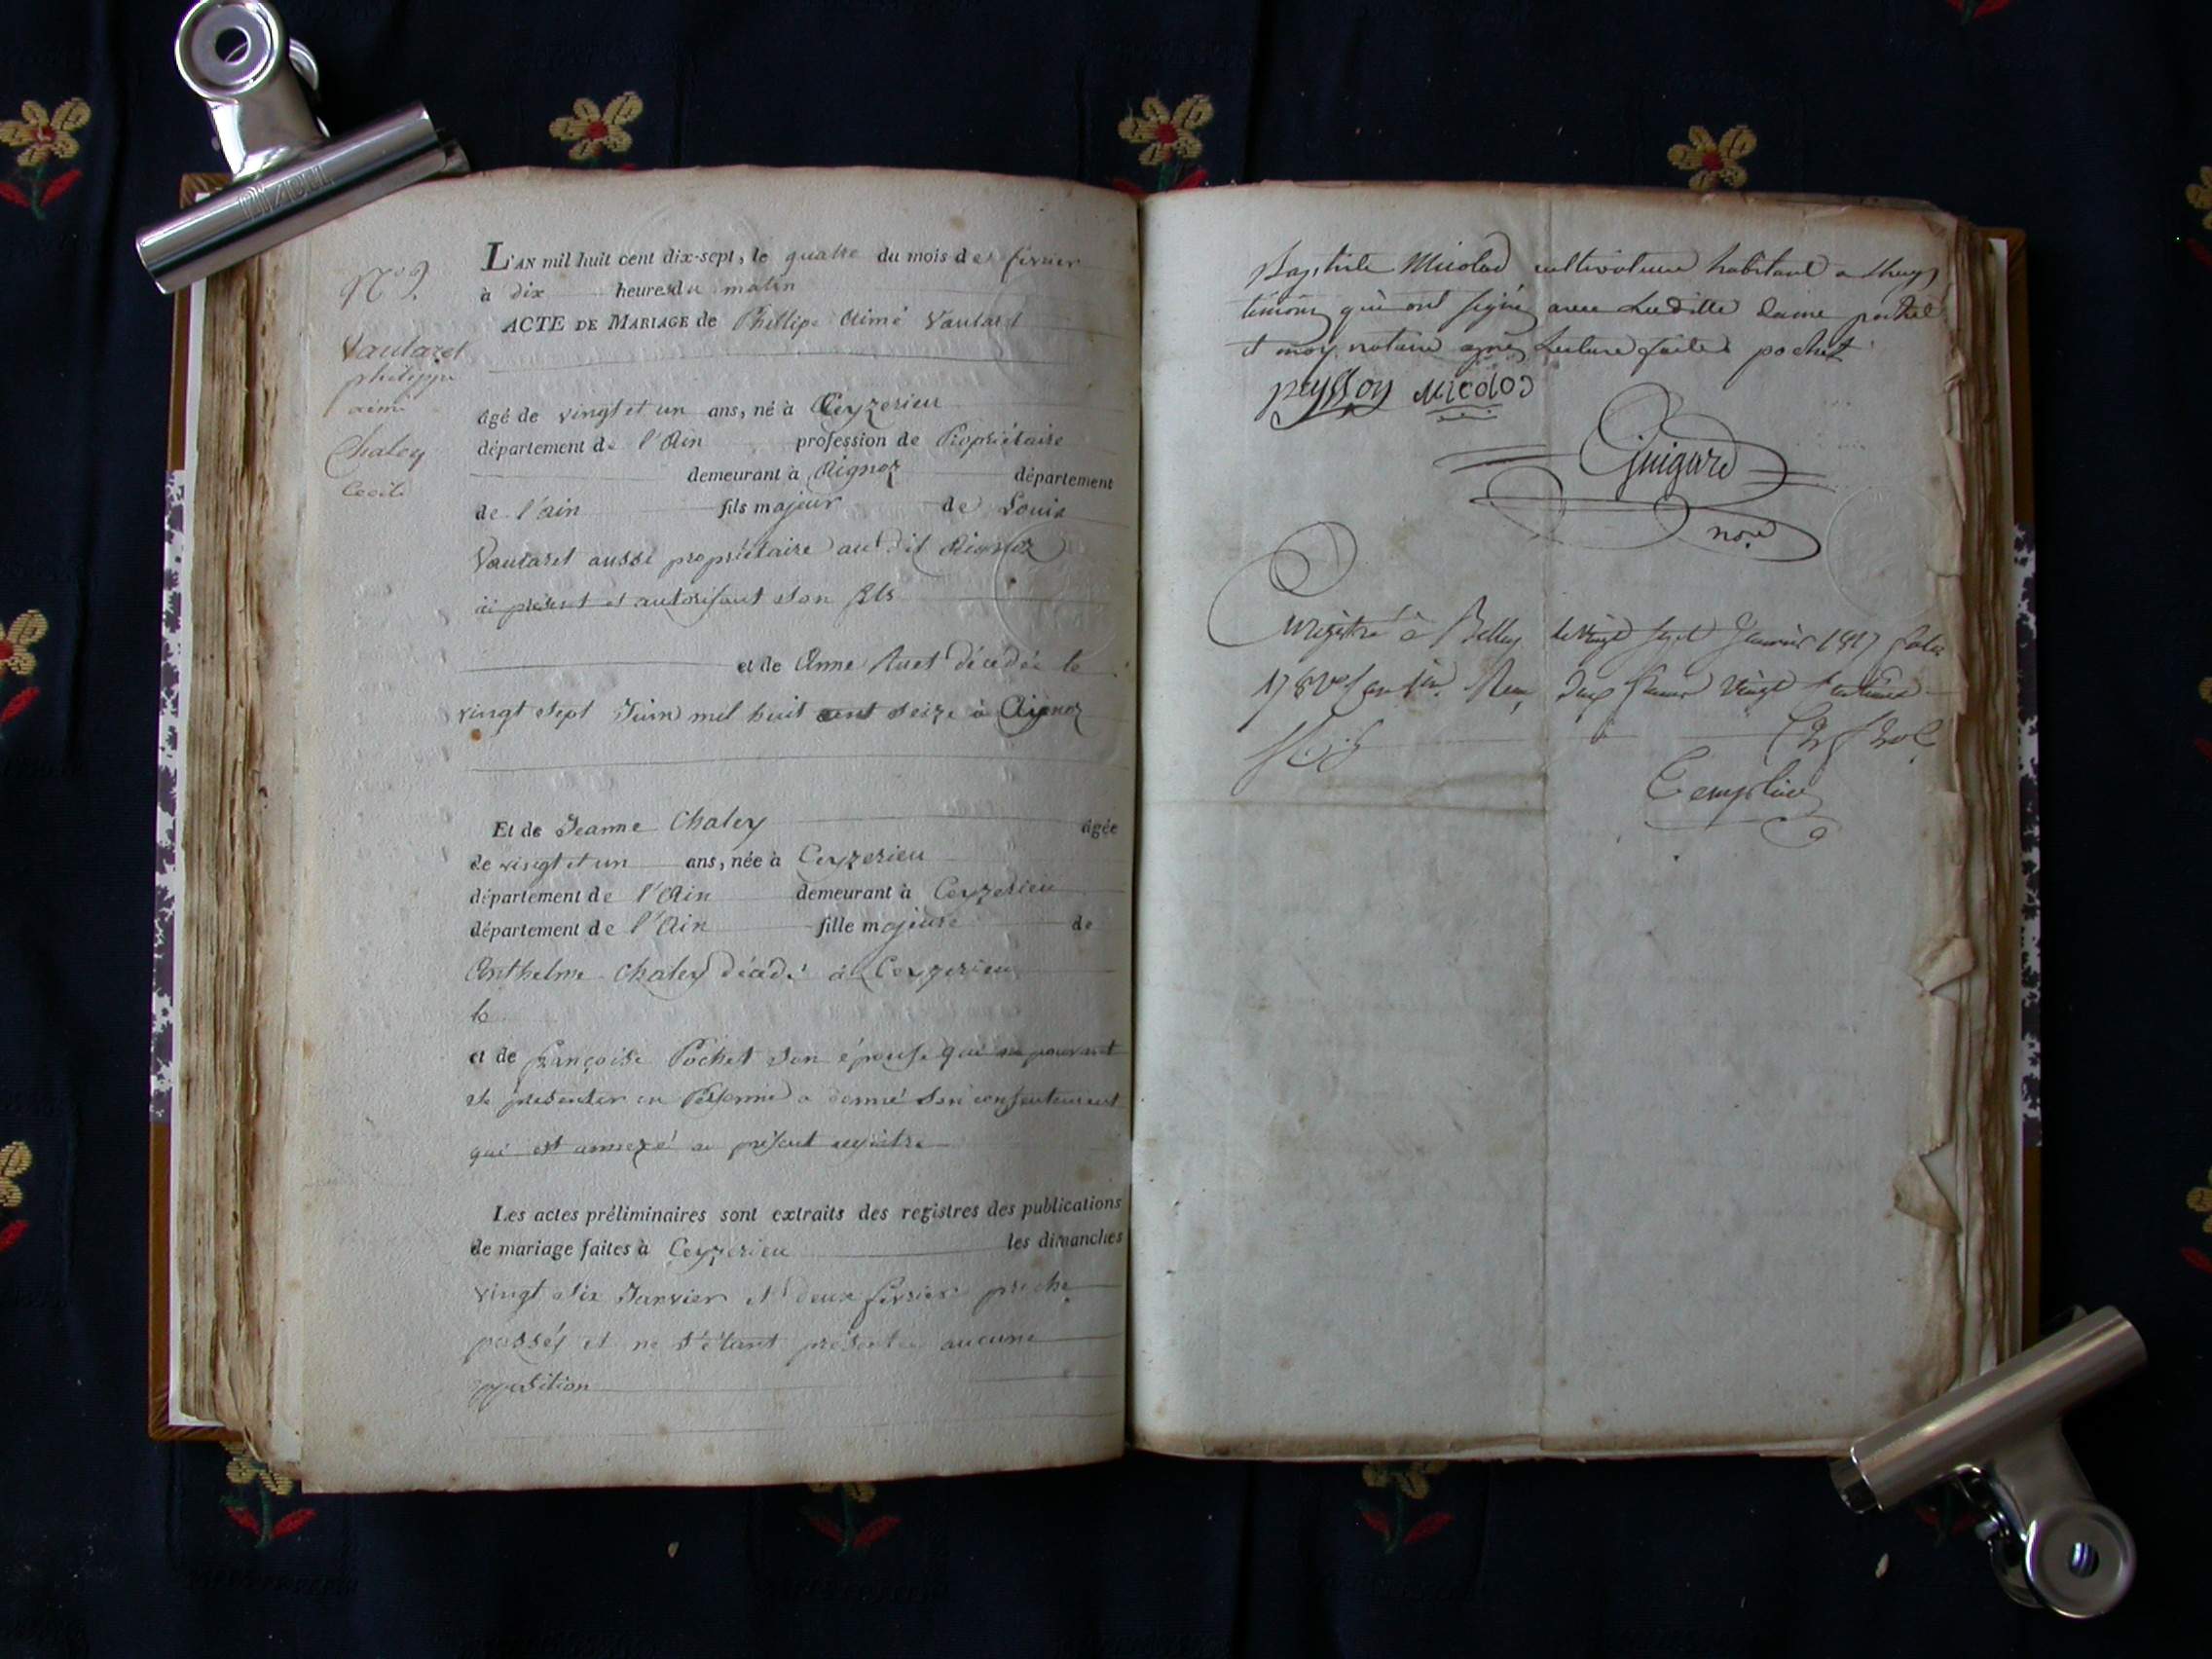 N° 2
Vautaret
philippe
aimé
Chaley
Cecile
L'AN mil huit cent dix-sept, le quatre du mois de février
à dix heures du matin
ACTE DE MARIAGE de Phillipe Aimé Vautaret
âgé de vingt et un ans, né à Ceyzerieu
département de l'Ain profession de Propriétaire
demeurant à Aignoz département
de l'ain fils majeur de Louis
Vautaret aussi propriétaire au dit Aignoz
ici présent et autorisant son fils
et de Anne décédée le
vingt sept Juin mil huit cent seize à Aignoz
Et de Jeanne Chaley âgée
de vingt et un ans, née à Ceyzerieu
département de l'Ain demeurant à Ceyzerieu
département de l'Ain fille majeure de
Anthelme Chaley décédé à Ceyzerieu
le
et de françoise Pochet son épouse qui ne pouvant
se présenter en Personne a donné son consentement
qui est annexé au présent registre
Les actes préliminaires sont extraits des registres des publications
de mariage faites à Ceyzerieu les dimanches
vingt six Janvier et deux février proche
passés et ne s'étant présentée aucune
opposition
Baptiste Micolod cultivateur habitant a
témoins qui ont signé avec Laditte dame pochet
et moy notaire après Lecture faite pochet
peysson Micolod
Guigard
nore
Enregistré à Belley le vingt sept Janvier 1817 folio
178 deux francs vingt centimes